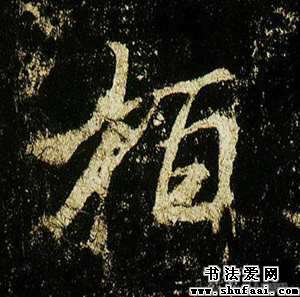 柏
书法爱网
www.shufaai.com